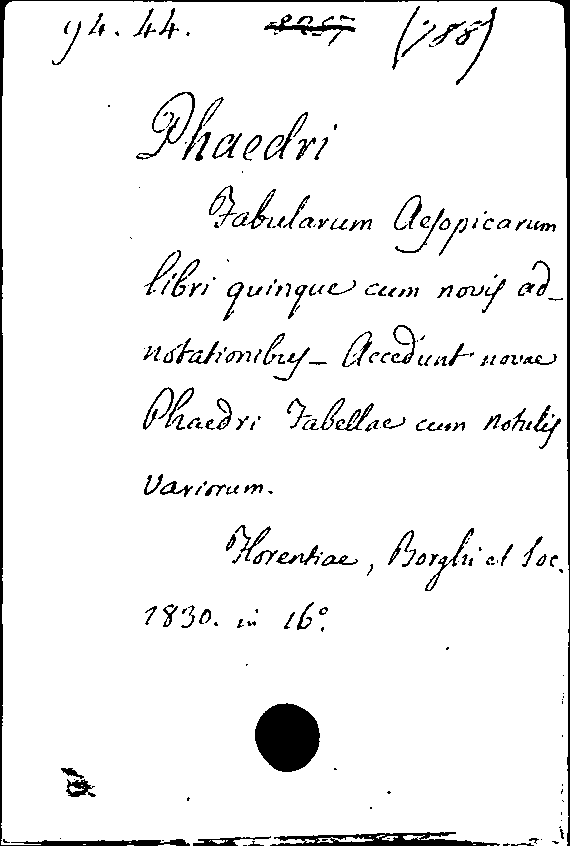 94. 44. (788)
Phaedri
Fabularum Aesopicarum
libri quinque cum novis ad_
notationibus_ Accedunt novae
Phaedri Fabellae cum notulis
variorum.
Florentiae, Borghi et Soc.
1830. in 16°.